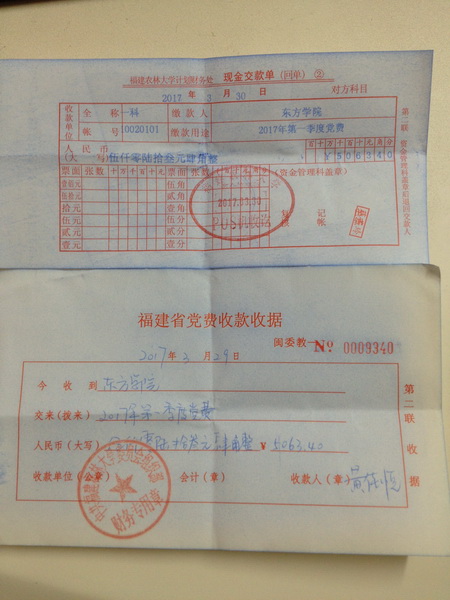 福建农林大学计划财务处 现金交款单 (回单) ②
2017 年 3 月 30 日 对方科目
收款单位 全称 一科 缴款人 东方学院
帐号 0020101 缴款用途 2017年第一季度党费
人民币
(大写) 伍仟零陆拾叁元肆角整 ¥506340
票面 张数 十万千百十元 票面 张数 (资金管理科盖章)
壹佰元 伍角
伍拾元 贰角
拾元 壹角
伍元 伍分
贰元 贰分
壹元 壹分
2017.03.30
复核
记帐
第二联
福建省党费收款收据
闽委教 No 0009340
2017年 3 月 29 日
今收到 东方学院
交来(拨来) 2017年第一季度党费
人民币(大写) 零陆拾叁元肆角整 ¥ 5063.40
收款单位(公章) 会计(章) 收款人(章)
第二联 收据
财务专用章